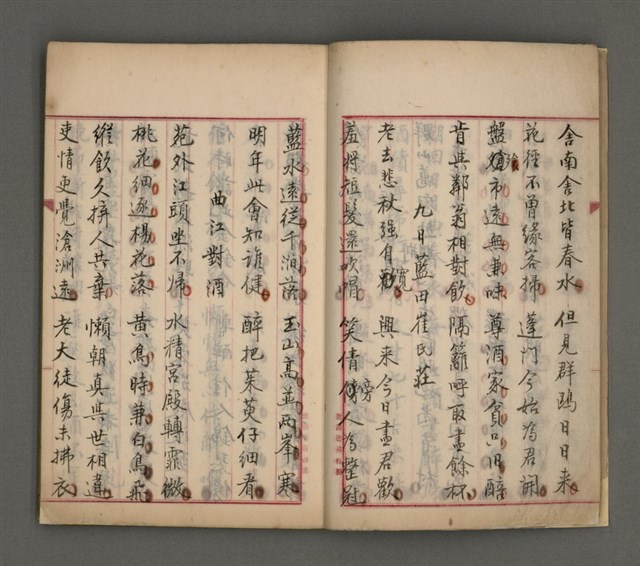 舍南舍北皆春水 但見群鷗日日来
花徑不曾緣客掃 蓬門今始為君開
盤飧市遠無兼味 尊酒家貧只旧醅
肯與鄰翁相對飲 隔籬呼取盡餘杯
九日藍田崔氏莊
老去悲秋强自寬 興来今日盡君歡
羞將短髮還吹帽 笑倩傍人為整冠
藍水遠從千澗落 玉山高並兩峯寒
明年此會知誰健 醉把茱萸仔細看
曲江對酒
苑外江頭坐不帰 水精宮殿轉霏微
桃花細逐楊花落 黃鳥時兼白鳥飛
縱飲久拚人共棄 懶朝真與世相違
吏情更覺滄洲遠 老大徒傷未拂衣